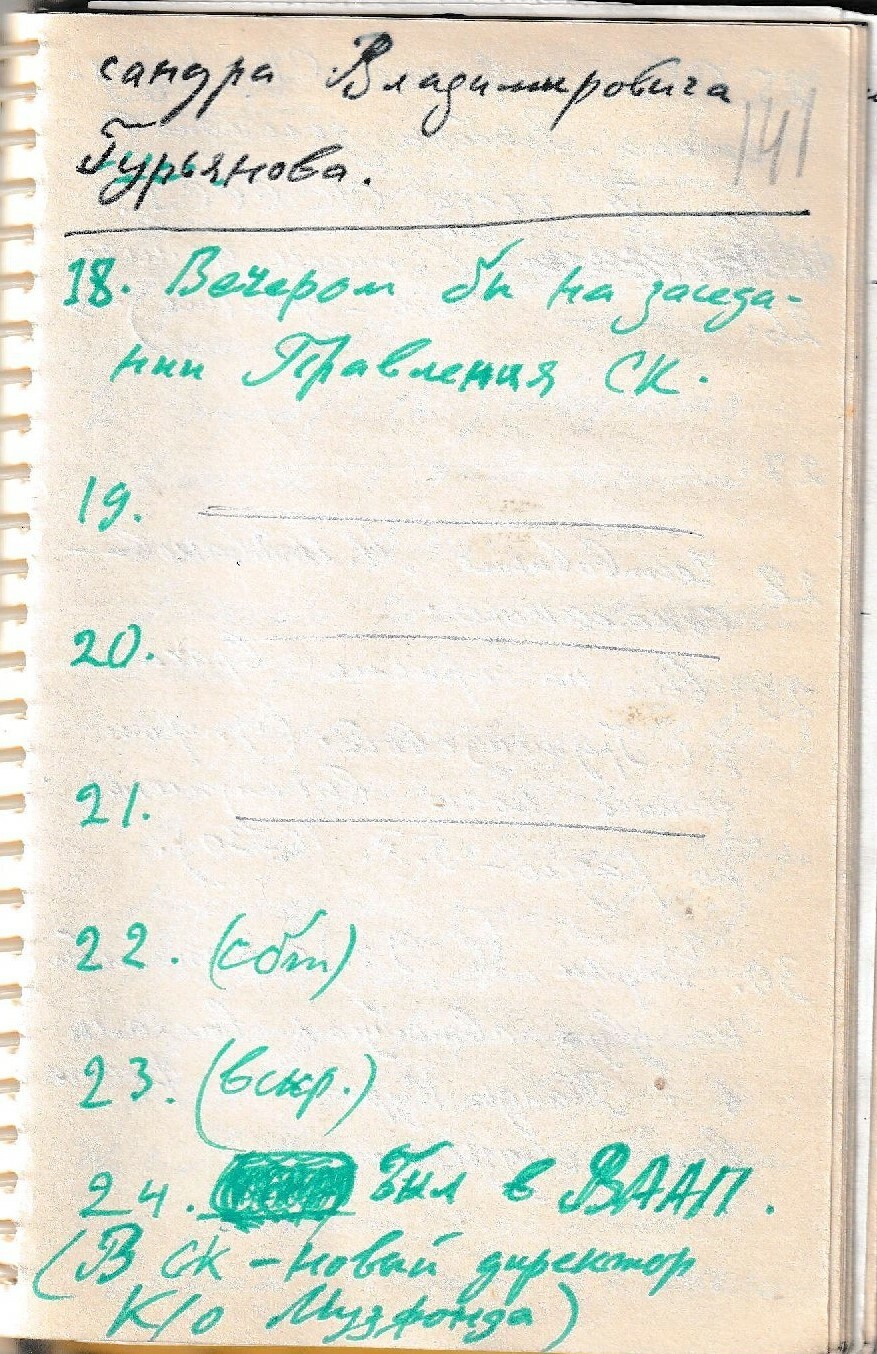 сандра Владимировича
141
Гурьянова.
18. Вечером бы на заседа-
нии Правления СК.
19.
20.
21.
22. (сбт)
23. (вскр.)
24. Был в ВААП.
(В СК - новый директор
К/о Музфонда)